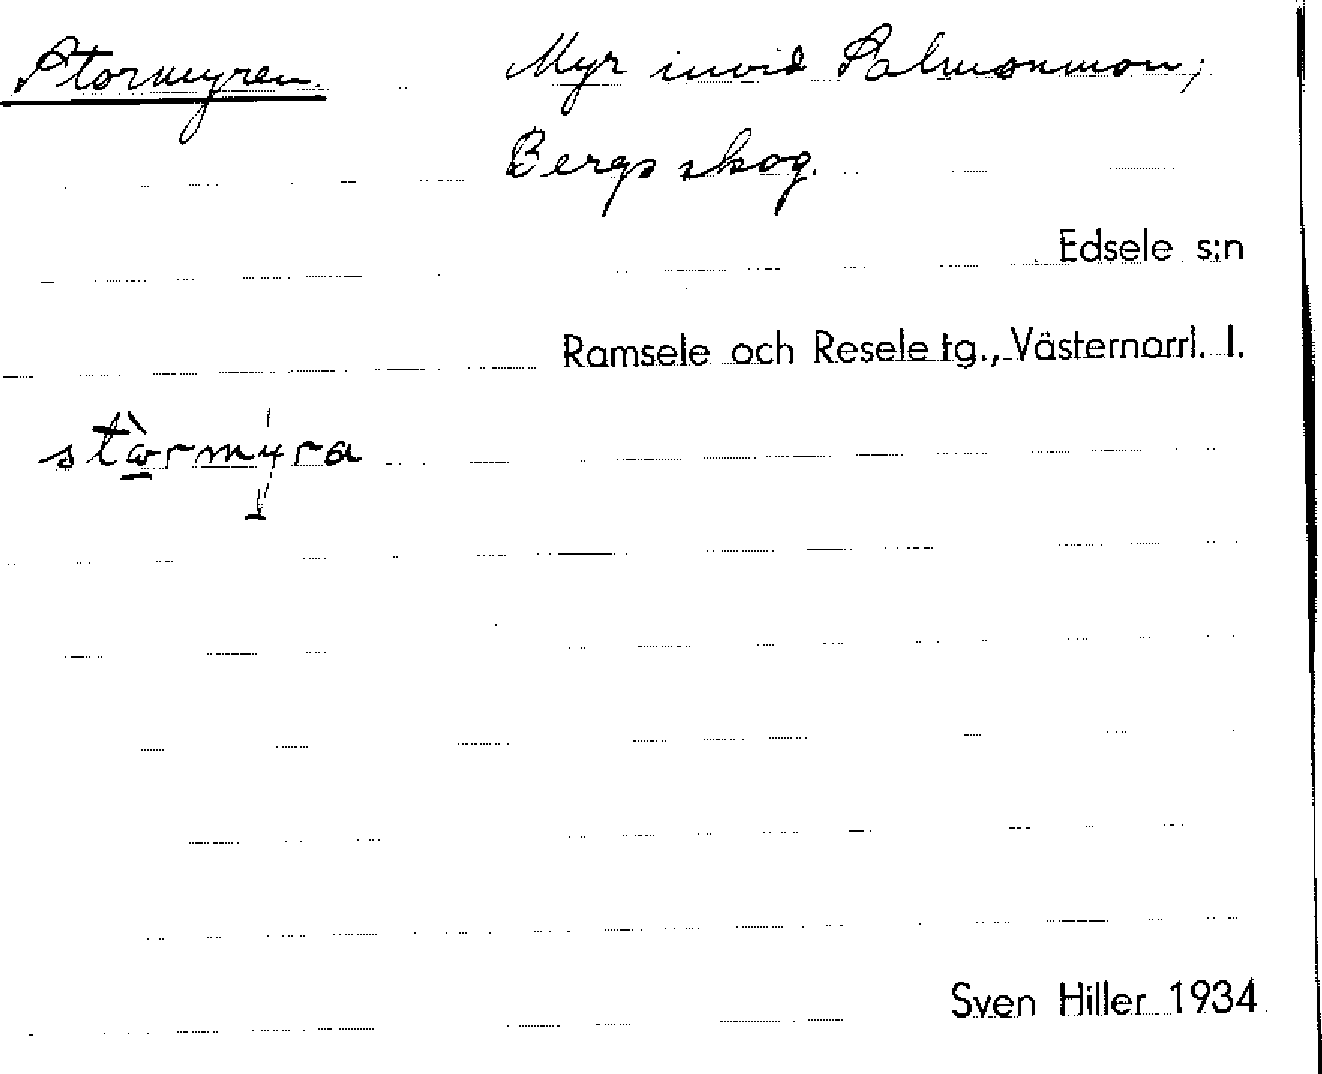 Stormyren. Myr invid Salmonmon,
Bergs skog.
Edsele s:n
Ramsele och Resele tg., Västernorrl. l.
stò̱rmyra
Sven Hiller 1934